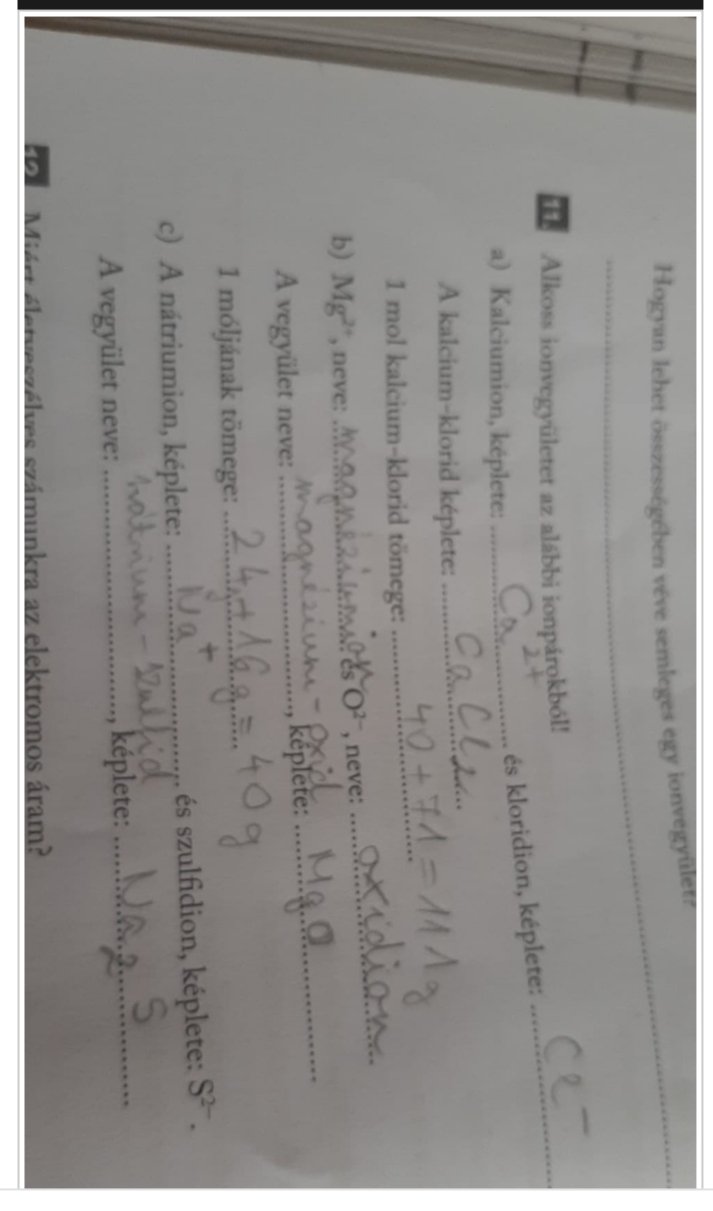 Hogyan lehet összességében véve semleges egy ionvegyület?
11. Alkoss ionvegyületet az alábbi ionpárokból!
a) Kalciumion, képlete: Ca2+ és kloridion, képlete: Cl−
A kalcium-klorid képlete: CaCl2
1 mol kalcium-klorid tömege: 40 + 71 = 111 g
b) Mg2+, neve: magnéziumion és O2−, neve: oxidion
A vegyület neve: magnézium-oxid, képlete: MgO
1 móljának tömege: 24 + 16 g = 40 g
c) A nátriumion, képlete: Na+ és szulfidion, képlete: S2−.
A vegyület neve: nátrium-szulfid, képlete: Na2S
12 Miért életveszélyes számunkra az elektromos áram?